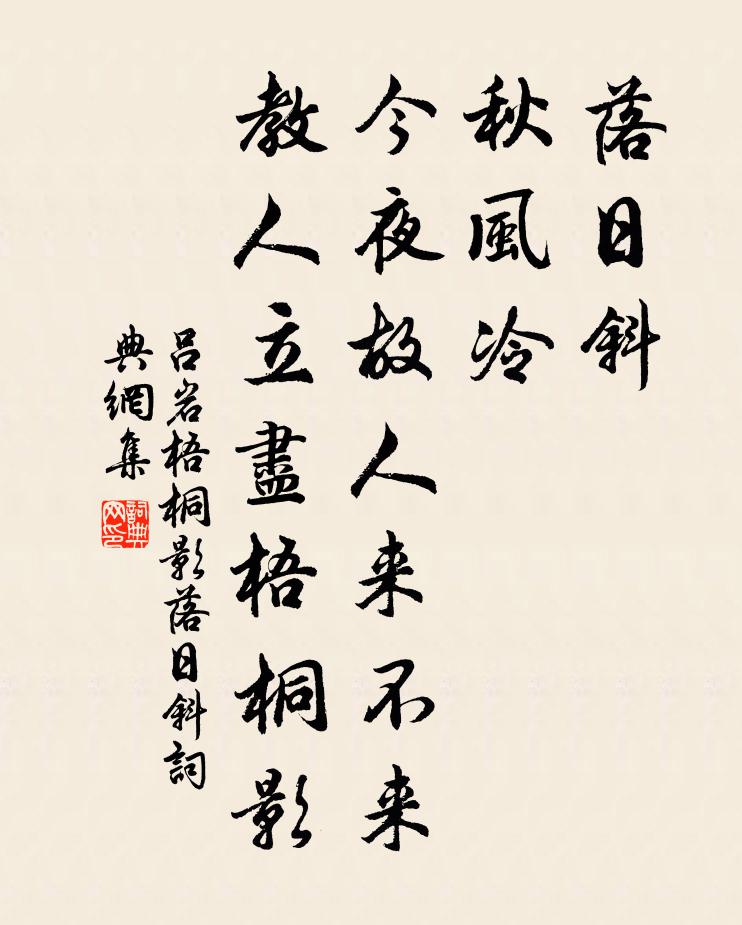 落日斜
秋風冷
今夜故人来不来
教人立盡梧桐影
吕岩梧桐影落日斜詞
典網集
詞典
网印